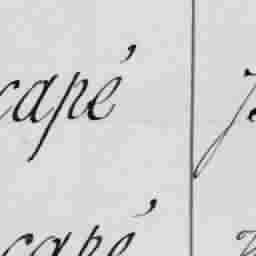 capé
capé